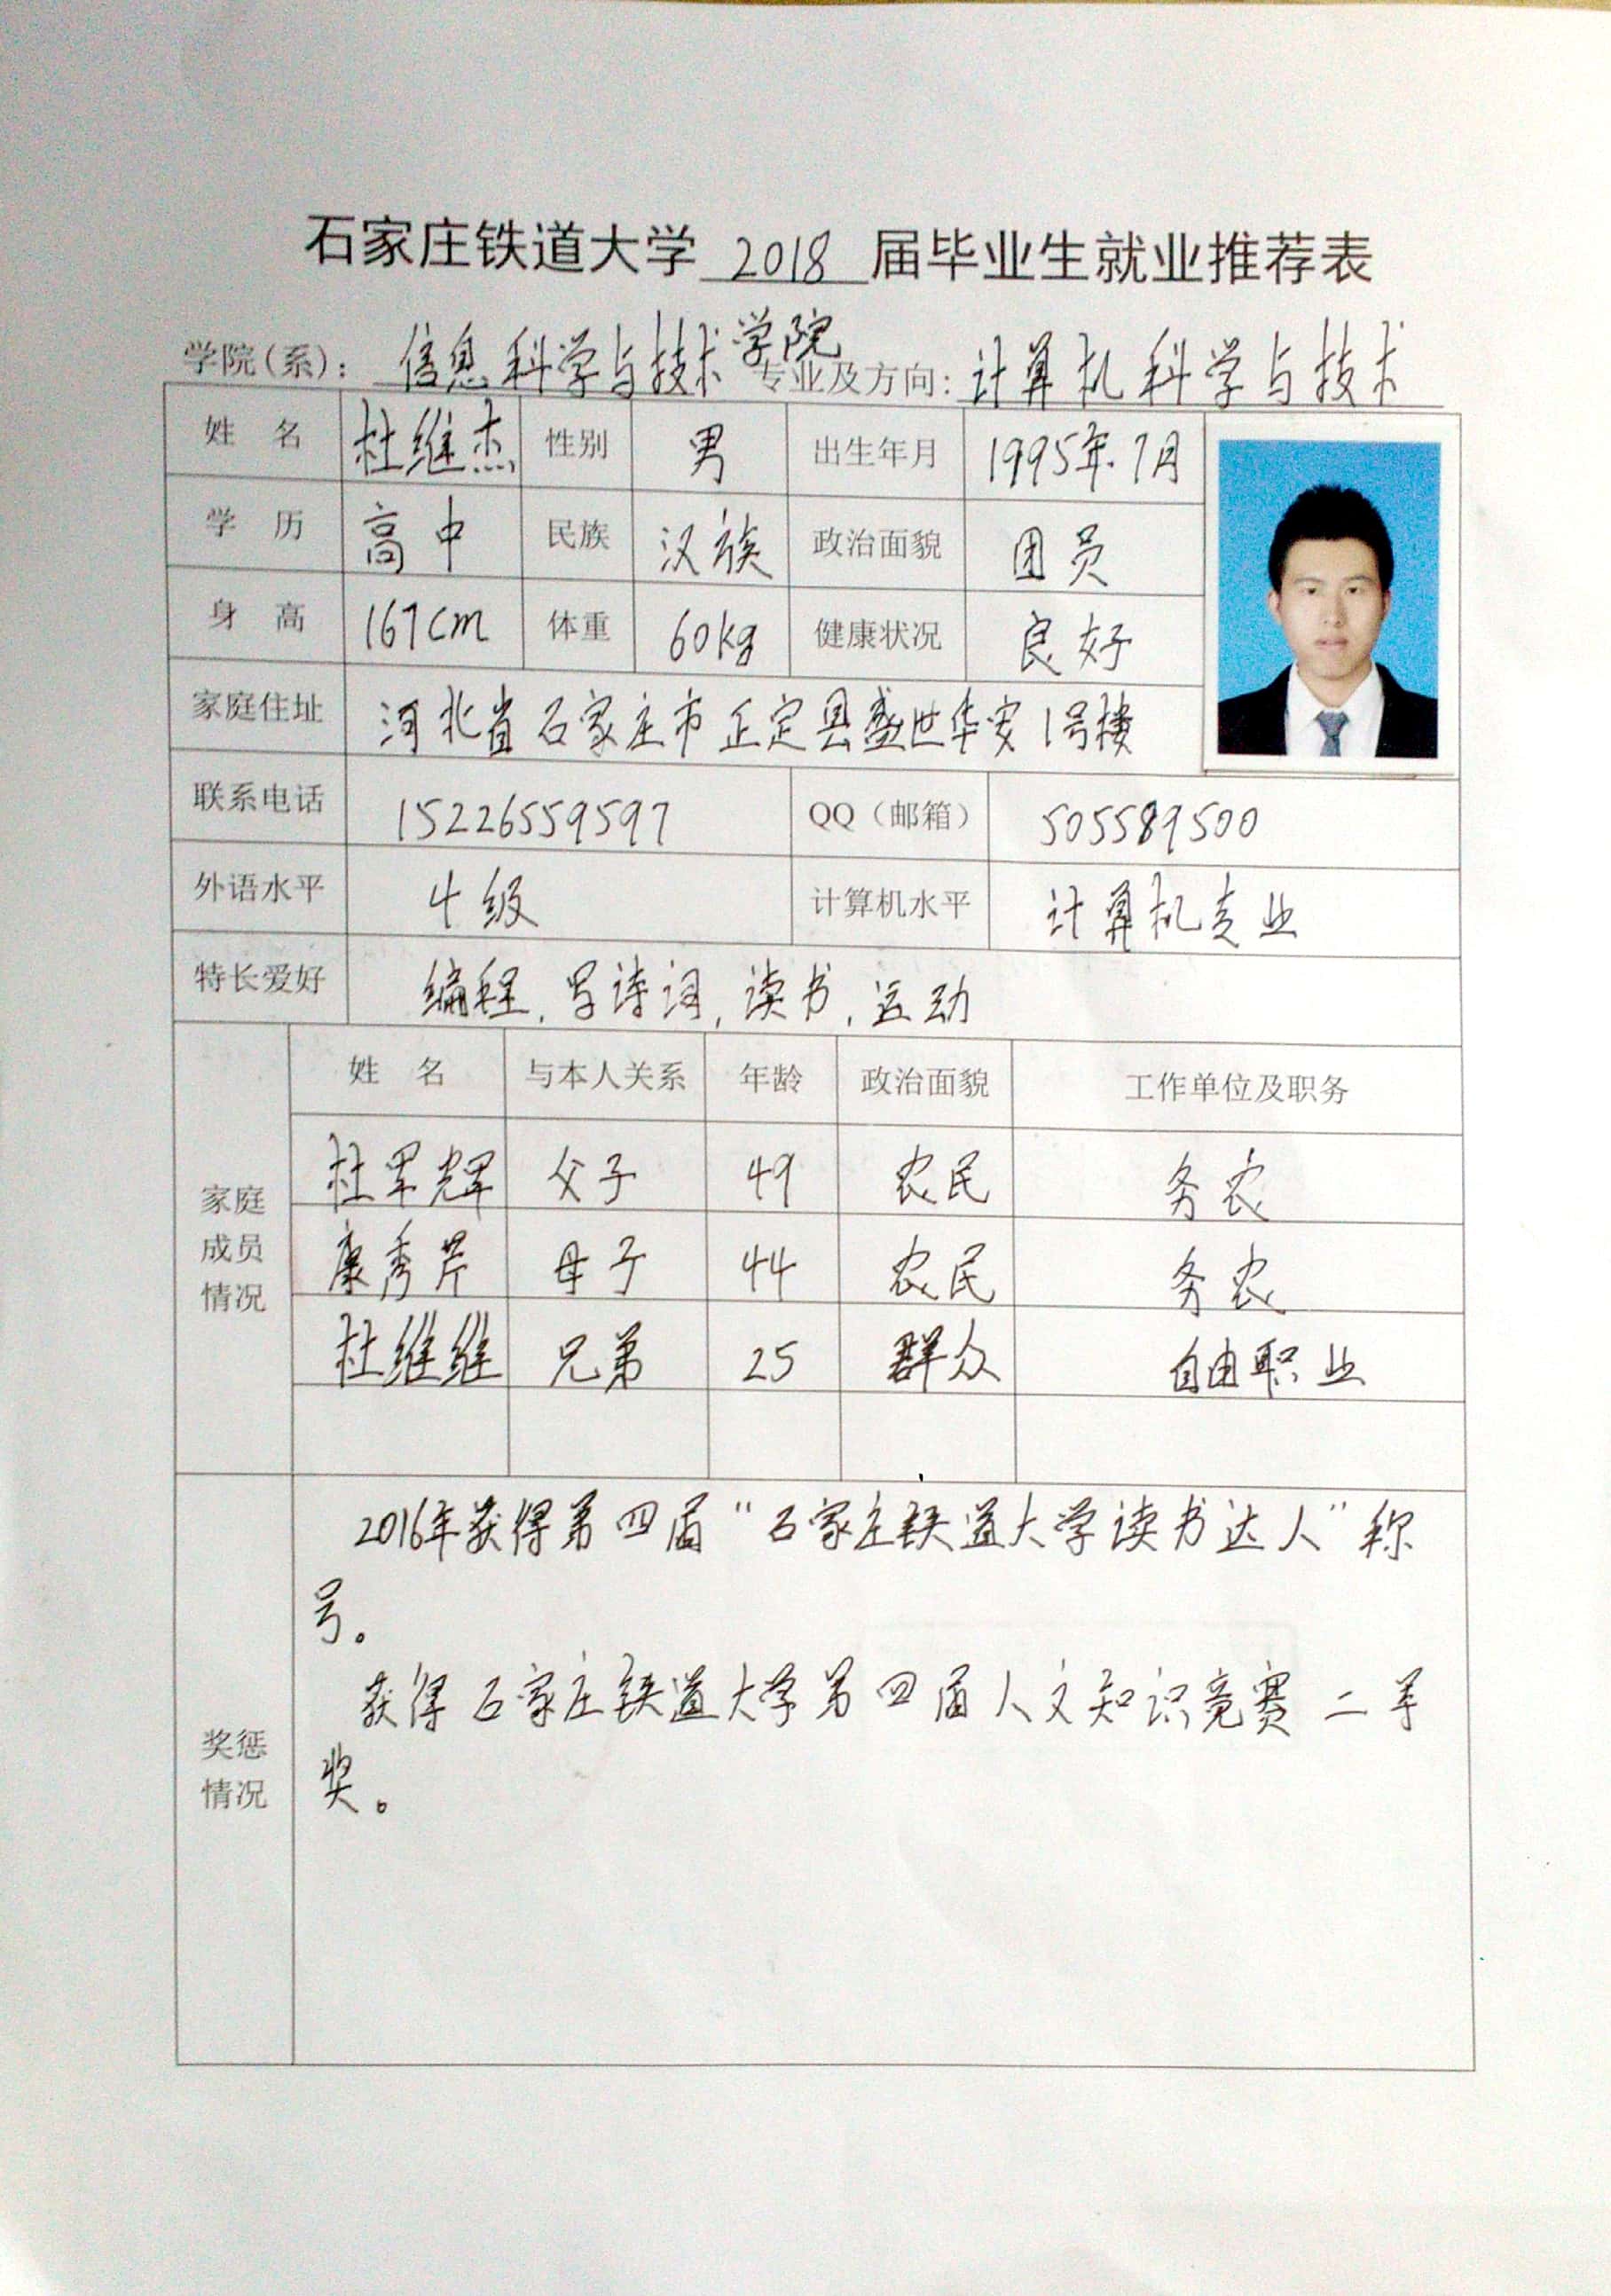 石家庄铁道大学 2018 届毕业生就业推荐表
学院(系): 信息科学与技术学院 专业及方向: 计算机科学与技术
姓 名 杜继杰 性别 男 出生年月 1995年.7月
学 历 高中 民族 汉族 政治面貌 团员
身 高 167cm 体重 60kg 健康状况 良好
家庭住址 河北省石家庄市正定县盛世华安1号楼
联系电话 15226559597 QQ（邮箱） 505589500
外语水平 4级 计算机水平 计算机专业
特长爱好 编程, 写诗词, 读书, 运动
姓 名 与本人关系 年龄 政治面貌 工作单位及职务
家庭成员情况
杜军辉 父子 49 农民 务农
康秀芹 母子 44 农民 务农
杜维继 兄弟 25 群众 自由职业
奖惩情况
2016年获得第四届“石家庄铁道大学读书达人”称
号。
获得石家庄铁道大学第四届人文知识竞赛二等
奖。